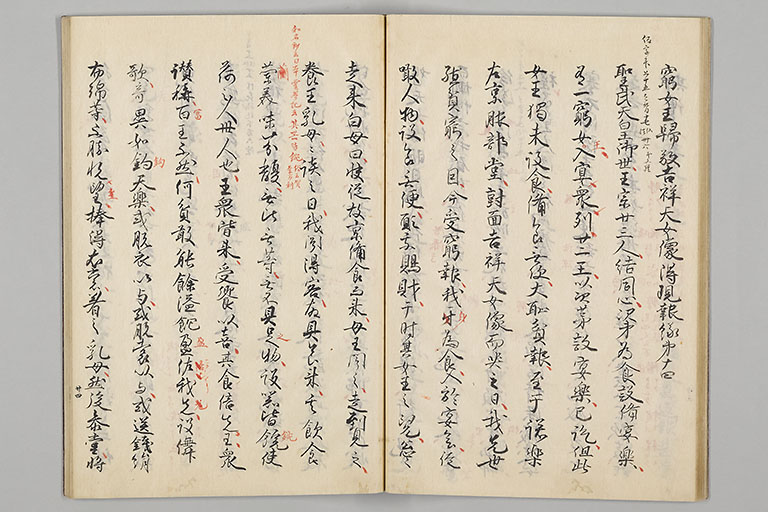 窮女王歸敬吉祥天女像得現報縁第十四
聖武天皇御世王宗廿三人結同心次第為食設備宴樂
有一窮女入宴衆列廿二王以次第設宴樂已訖但此
女王獨未設食備食无便大恥貧報至于諾樂
左京服部堂對面吉祥天女像而哭之曰我先世
殖貧窮之因今受窮報我身為食入於宴會徒
噉人物設食无便願我賜財于時其女王之兒忩々
走来白母曰快從故京備食而来母王聞之走到見之
養王乳母々談之曰我聞得客故具食来其飲食
蘭美味芬馥无比无等无不具足物設器皆鋺使
荷之人卅人也王衆皆来受饗以喜其食倍先王衆
讃稱百王之然何貧敢能餘溢飽盈佐我先設儛
歌奇異如鈞天樂或脱衣以与或脱裳以与或送錢絹
布綿等不勝悦望捧得衣裳著之乳母然後参堂将